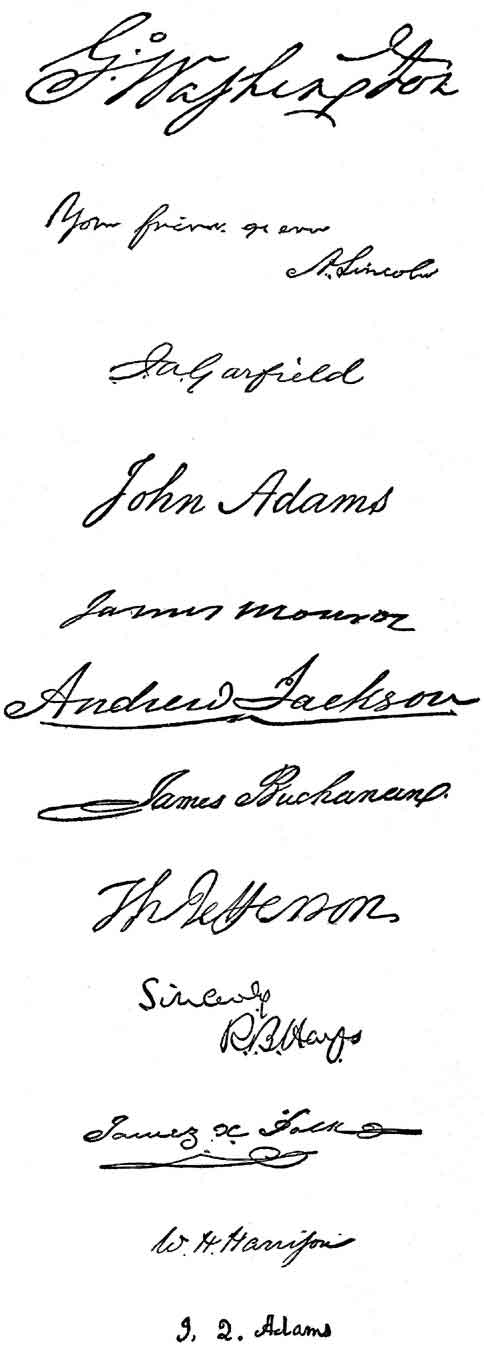 G. Washington
Your friend as ever
A. Lincoln
J. A. Garfield
John Adams
James Monroe
Andrew Jackson
James Buchanan
Th Jefferson
Sincerely
R. B. Hayes
James K Polk
W. H. Harrison
J. Q. Adams